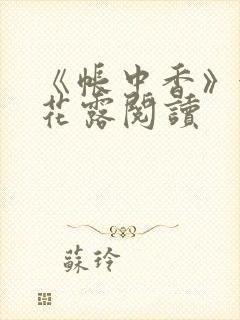 《帳中香》
花露閱讀
蘇玲